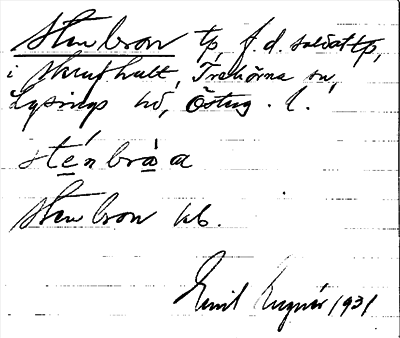 Stenbron tp, f.d. soldattp,
i Skrufhult, Trehörna sn,
Lysings hd, Östug. l.
sténbråa
Stenbron kb.
Emil 1931